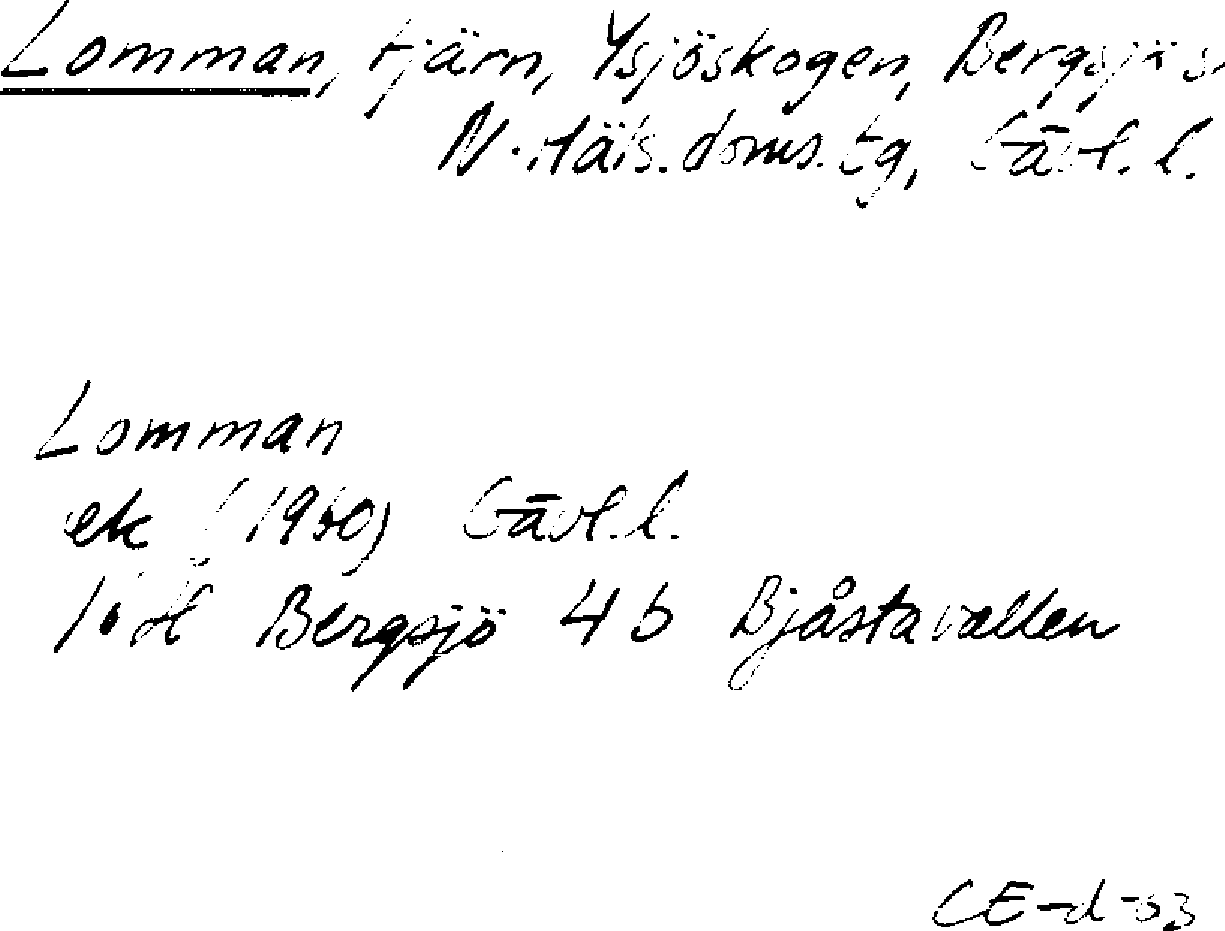 Lomman, tjärn, Ysjöskogen, Bergsjö sn
N. Häls. doms. tg, Gävl. l.
Lomman
ek (1960) Gävl. l.
16H Bergsjö 4b Bjåstavallen
CE-d-63